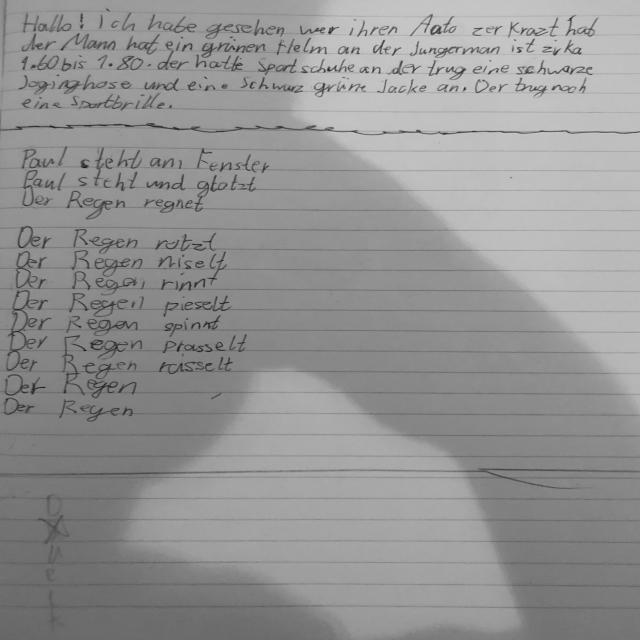 Hallo! ich habe gesehen wer ihren Aato zer Krazt hat
der Mann hat ein grünen Helm an der Jungerman ist zirka
1.60 bis 1.80. der hatte Sportschuhe an der trug eine schwarze
Joginghose und eine Schwarz grüne Jacke an. Der trug noch
eine Sportbrille.
Paul steht am Fenster
Paul steht und glotzt
Der Regen regnet
Der Regen rotzt
Der Regen niselt
Der Regen rinnt
Der Regen pieselt
Der Regen spinnt
Der Regen prasselt
Der Regen raisselt
Der Regen
Der Regen